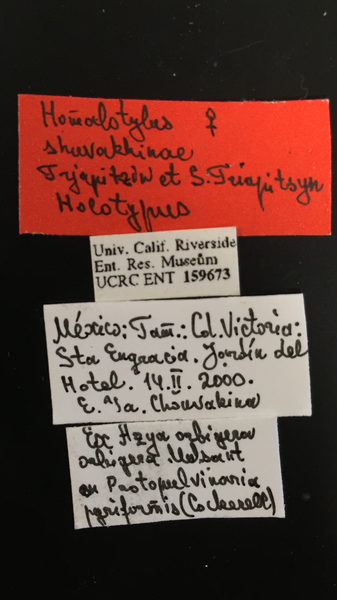 Homalotylus ♀
shuvakhinae
Trjapitzin et S. Triapitsyn
Holotypus
Univ. Calif. Riverside
Ent. Res. Museum
UCRC ENT 159673
México: Tam.: Cd. Victoria:
Sta Engracia. Jardín del
Hotel. 14.II. 2000.
E. Ya. Chouvakina
Ex Azya orbigera
orbigera Mulsant
on Protopulvinaria
pyriformis (Cockerell)